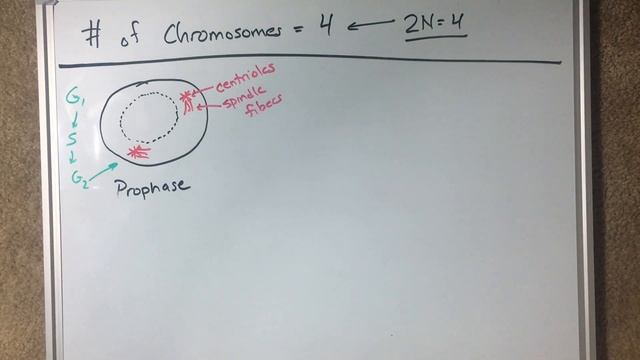 # of Chromosomes = 4 ← 2N=4
centrioles
spindle
fibers
G₁
S
G₂
Prophase